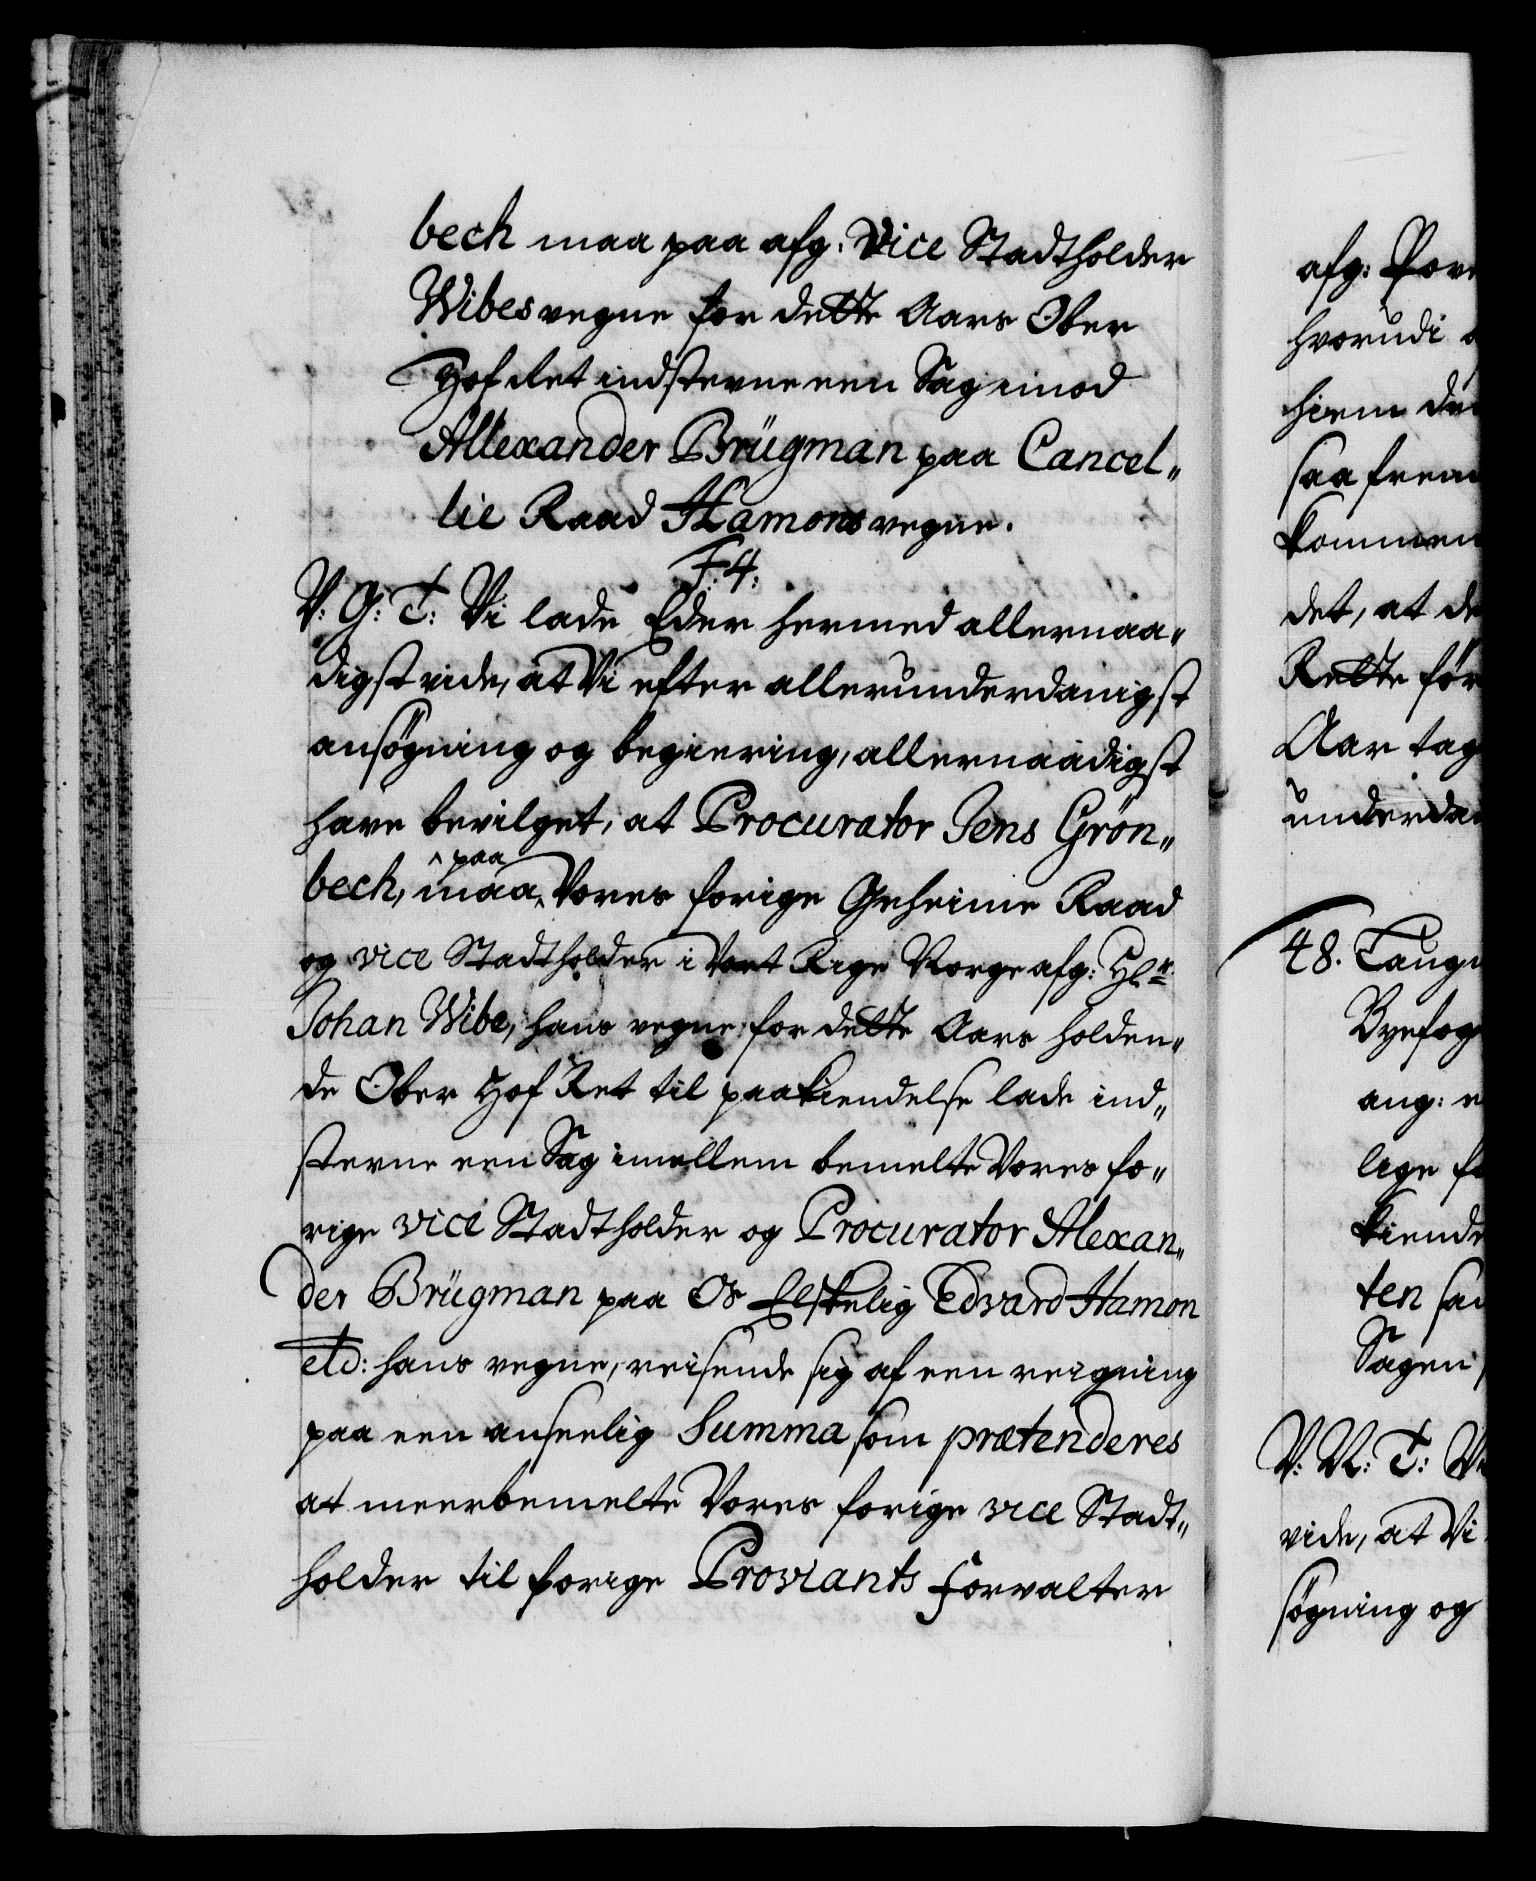 bech maa paa afg: Vice Stadtholder
Wibes vegne for dette Aars Ober
Hof Ret indstevne een Sag imod
Allexander Brügman paa Cancel„
lie Raad Hamons vegne.
F. 4:
V: G: T: Vi lade Eder hermed allernaa„
digst vide, at Vi efter allerunderdanigst
ansøgning og begiering, allernaadigst
have bevilget, at Procurator Jens Grøn„
bech, maa ^paa^ Vores forige Geheime Raad
og vice Stadtholder i Vort Rige Norge afg: Hr.
Johan Wibe, hans vegne for dette Aars holden„
de Ober Hof Ret til paakiendelse lade ind„
stevne een Sag imellem bemelte Vores fo„
rige vice Stadtholder og Procurator Alexan„
der Brügman paa Os Elskelig Edvard Hamon
etc: hans vegne, reisende sig af een reigning
paa een anseelig Summa som prætenderes
at meerbemelte Vores forige vice Stadt„
holder til forige Proviants Forvalter
afg: Pov
hvorudi
hiem de
saa frem
kommen
det, at de
Rette før
Aar tag
underda
48. Laug
Byefog
ang:
lige f
kiende
ten sa
Sagen
V: N: T: V
vide, at Vi
søgning og